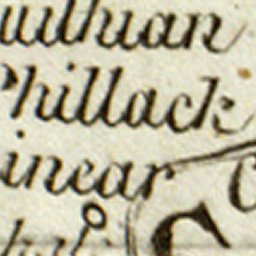 uithian
Phillack
inear